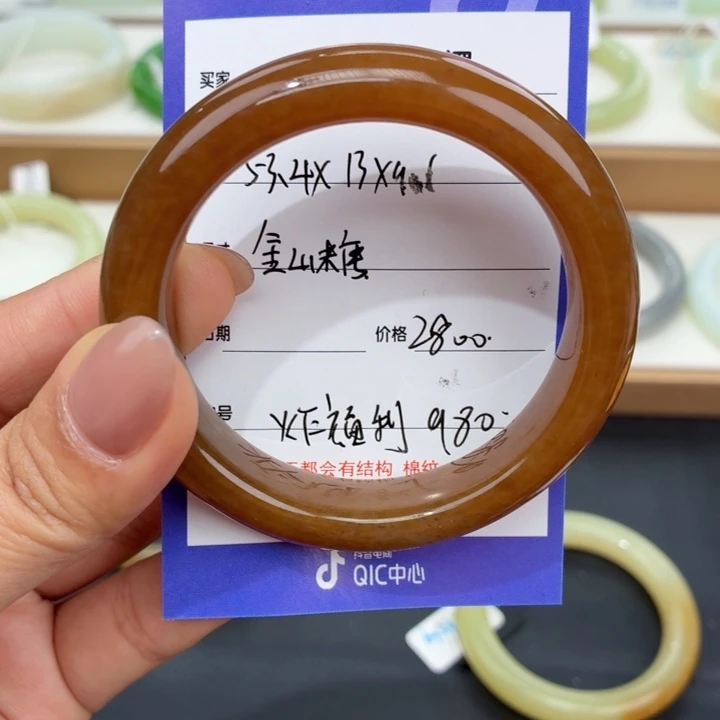 买家
53.4X 13X9.1
金山雄
日期
价格 2800.
号 炸福利 980.
都会有结构 棉纹
抖音电商
QIC中心